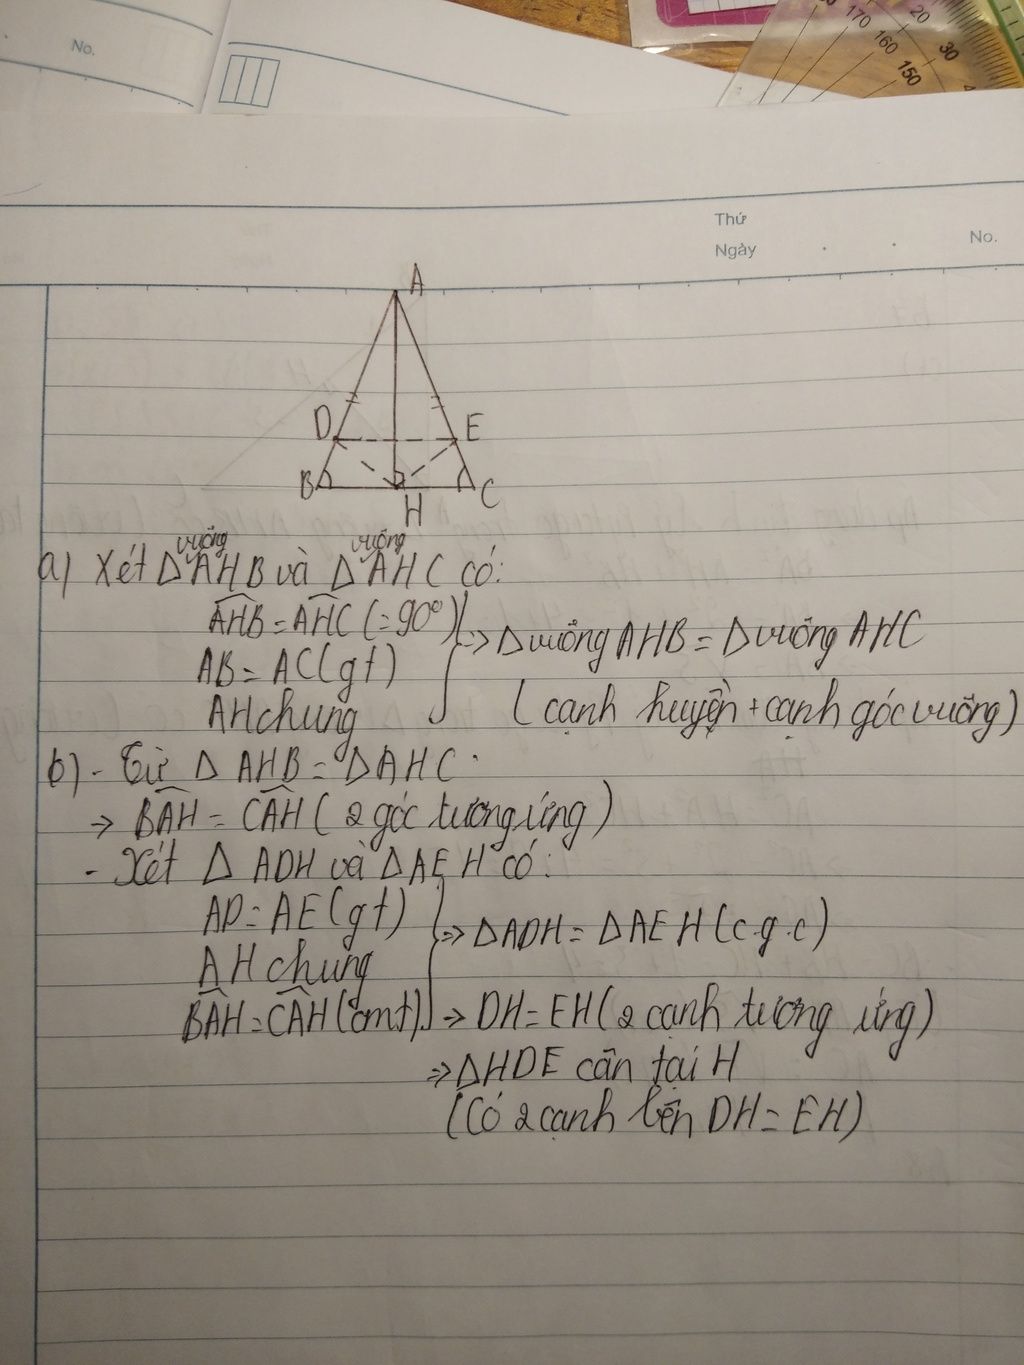 No.
170
160
150
20
30
Thứ
Ngày
No.
A
D
E
B
C
H
vuông vuông
a) Xét Δ AHB và Δ AHC có:
AHB = AHC (= 90°)
=> Δ vuông AHB = Δ vuông AHC
AB = AC (gt)
AH chung
(cạnh huyền + cạnh góc vuông)
b) - Từ Δ AHB = Δ AHC
=> BAH = CAH (2 góc tương ứng)
- Xét Δ ADH và Δ AEH có:
AD = AE (gt)
=> Δ ADH = Δ AEH (c.g.c)
AH chung
BAH = CAH (cmt)
=> DH = EH (2 cạnh tương ứng)
=> Δ HDE cân tại H
(Có 2 cạnh bên DH = EH)